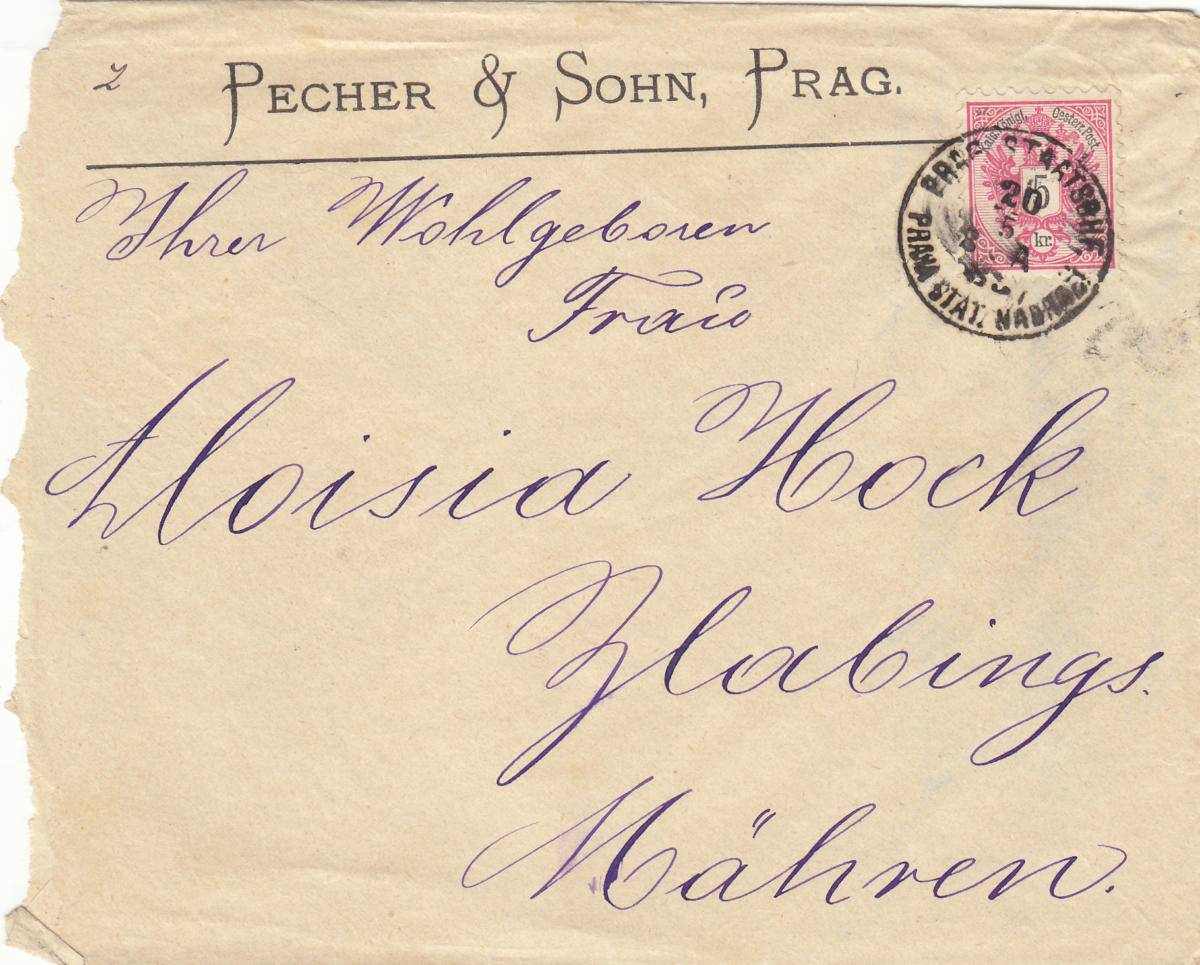 2 PECHER & SOHN, PRAG.
Kais. Königl. Oesterr. Post.
5
kr.
PRAG STAATSBHF.
20
5
8 A
PRAHA STÁT. NÁDRAŽÍ
Ihrer Wohlgeboren
Frau
Aloisia Hock
Zlabings.
Mähren.